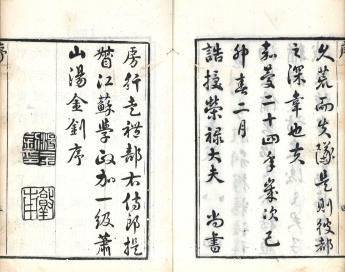 久荒而失墜是則彼都
之深幸也夫
嘉慶二十四年歲次己
卯春二月
誥授榮祿大夫 尚書
房行走禮部右侍郎提
督江蘇學政加一級蕭
山湯金釗序